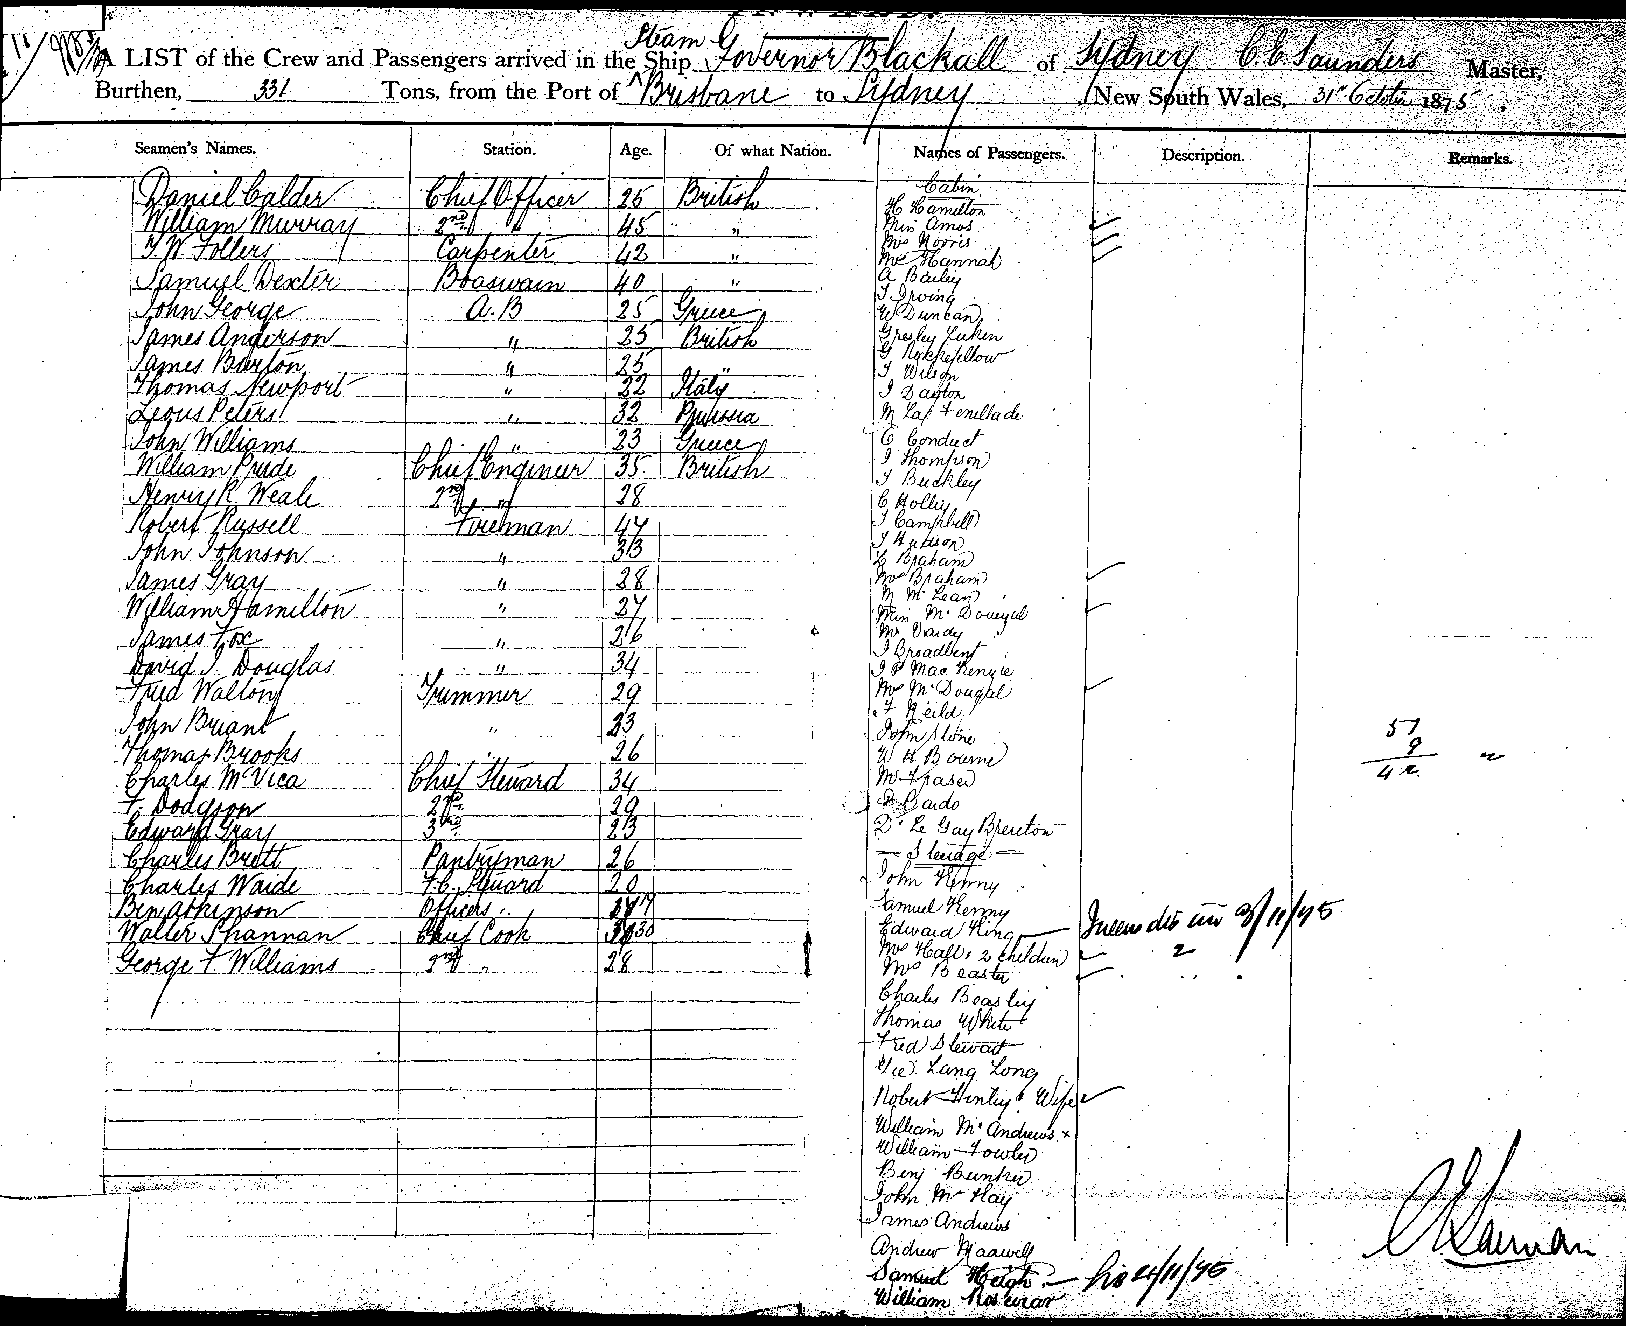 Steam
A LIST of the Crew and Passengers arrived in the Ship Governor Blackall of Sydney C. E. Saunders Master,
Burthen, 331 Tons, from the Port of Brisbane to Sydney New South Wales, 31st October 1875.
Seamen's Names. Station. Age. Of what Nation. Names of Passengers. Description. Remarks.
Daniel Calder Chief Officer 25 British
William Murray 2nd " 45 "
T W Follers Carpenter 42 "
Samuel Dexter Boaswain 40 "
John George A.B 25 Greece
James Anderson " 25 British
James Barton " 25 "
Thomas Newport " 22 Italy
Peters " 32 Prussia
John Williams " 23 Greece
William Pride Chief Engineer 35 British
Henry R Weale 2nd " 28
Robert Russell Fireman 47
John Johnson " 33
James Gray " 28
William Hamilton " 27
James Fox " 26
David J. Douglas " 34
Fred Walton Trimmer 29
John Briant " 23
Thomas Brooks 26
Charles McVica Chief Steward 34
F. Dodgson 2nd 29
Edward Gray 3rd 23
Charles Brett Pantryman 26
Charles Waide F.C. Steuard 20
Ben Atkinson Officers " 17
Walter Shannan Chief Cook 30
George F. Williams 2nd " 28
Cabin
H Hamilton
Miss Amos
Mrs Norris
Mrs Hannah
A Bailey
J Irving
W Duncan
Gresley Lukin
G Rokkefellow
T Wilson
J Dayton
C Conduct
J Thompson
J Buckley
C Hollis
J Campbell
J Hudson
Braham
Mrs Braham
McLean
Miss McDougal
Mr Dardy
J Broadbent
J P MacKenzie
Mrs McDougal
F Neild
John Stone
W H Bourne
Mr Fraser
Gaido
Dr Le Gay Brereton
— Steerage —
John Kenny
Samuel Kenny
Edward King
Mrs Hall & 2 children 2
Mrs Beaster
Charles Boasley
Thomas White
Fred Stewart
Gee Lang Long
Robert Finley & Wife
William McAndrews x
William Fowler
Benj Bunker
John McHay
James Andrews
Andrew Maxwell
Samuel Heigh
William
51
9
42